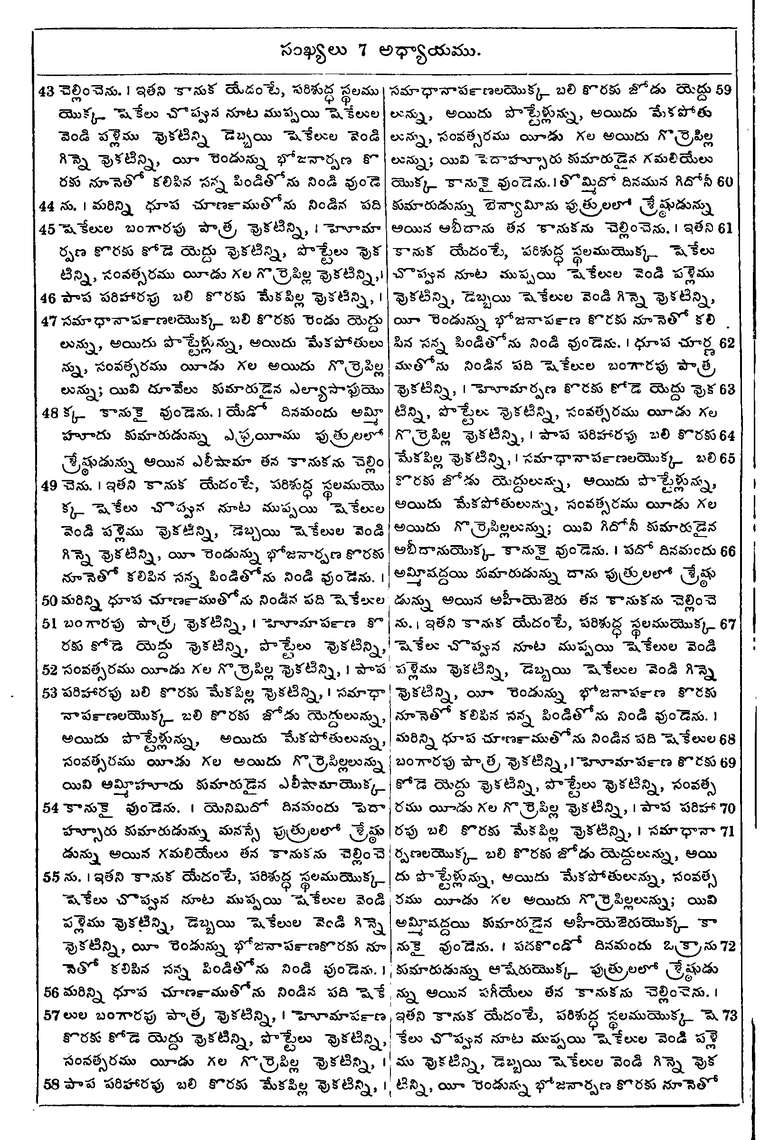 సంఖ్యలు 7 అధ్యాయము.
43 చెల్లించెను. । ఇతని కానుక యేదంటే, పరిశుద్ధ స్థలము
యొక్క షెకేలు చొప్పున నూట ముప్పయి షెకేలుల
వెండి పళ్లెము వొకటిన్ని డెబ్బయి షెకేలుల వెండి
గిన్నె వొకటిన్ని, యీ రెండున్ను భోజనార్పణ కొ
రకు నూనెతో కలిపిన సన్న పిండితోను నిండి వుండె
44 ను. । మరిన్ని ధూప చూర్ణముతోను నిండిన పది
45 షెకేలుల బంగారపు పాత్ర వొకటిన్ని, । హెూమా
ర్పణ కొరకు కోడె యెద్దు వొకటిన్ని, పొట్టేలు వొక
టిన్ని, సంవత్సరము యీడు గల గొర్రెపిల్ల వొకటిన్ని, ।
46 పాప పరిహారపు బలి కొరకు మేకపిల్ల వొకటిన్ని, ।
47 సమాధానార్పణలయొక్క బలి కొరకు రెండు యెద్దు
లున్ను, అయిదు పొట్టేళ్లున్ను, అయిదు మేకపోతులు
న్ను, సంవత్సరము యీడు గల అయిదు గొర్రెపిల్ల
లున్ను; యివి దూవేలు కుమారుడైన ఎల్యాసాపుయొ
48 క్క కానుకై వుండెను. । యేడో దినమందు అమ్మి
హూదు కుమారుడున్ను ఎఫ్రయీము పుత్రులలో
శ్రేష్ఠుడున్ను అయిన ఎలీషామా తన కానుకను చెల్లిం
49 చెను. । ఇతని కానుక యేదంటే, పరిశుద్ధ స్థలముయొ
క్క షెకేలు చొప్పున నూట ముప్పయి షెకేలుల
వెండి పళ్లెము వొకటిన్ని, డెబ్బయి షెకేలుల వెండి
గిన్నె వొకటిన్ని, యీ రెండున్ను భోజనార్పణ కొరకు
నూనెతో కలిపిన సన్న పిండితోను నిండి వుండెను. ।
50 మరిన్ని ధూప చూర్ణముతోను నిండిన పది షెకేలుల
51 బంగారపు పాత్ర వొకటిన్ని, । హెూమార్పణ కొ
రకు కోడె యెద్దు వొకటిన్ని, పొట్టేలు వొకటిన్ని,
52 సంవత్సరము యీడు గల గొర్రెపిల్ల వొకటిన్ని, । పాప
53 పరిహారపు బలి కొరకు మేకపిల్ల వొకటిన్ని, । సమాధా
నార్పణలయొక్క బలి కొరకు జోడు యెద్దులున్ను,
అయిదు పొట్టేళ్లున్ను, అయిదు మేకపోతులున్ను,
సంవత్సరము యీడు గల అయిదు గొర్రెపిల్లలున్ను
యివి అమ్మిహూదు కుమారుడైన ఎలీషామాయొక్క
54 కానుకై వుండెను. । యెనిమిదో దినమందు పెదా
హ్సూరు కుమారుడున్ను మనస్సే పుత్రులలో శ్రేష్ఠు
డున్ను అయిన గమలియేలు తన కానుకను చెల్లించె
55 ను. । ఇతని కానుక యేదంటే, పరిశుద్ధ స్థలముయొక్క
షెకేలు చొప్పున నూట ముప్పయి షెకేలుల వెండి
పళ్లెము వొకటిన్ని, డెబ్బయి షెకేలుల వెండి గిన్నె
వొకటిన్ని, యీ రెండున్ను భోజనార్పణకొరకు నూ
నెతో కలిపిన సన్న పిండితోను నిండి వుండెను. ।
56 మరిన్ని ధూప చూర్ణముతోను నిండిన పది షెకే
57 లుల బంగారపు పాత్ర వొకటిన్ని, । హెూమార్పణ
కొరకు కోడె యెద్దు వొకటిన్ని, పొట్టేలు వొకటిన్ని,
సంవత్సరము యీడు గల గొర్రెపిల్ల వొకటిన్ని, ।
58 పాప పరిహారపు బలి కొరకు మేకపిల్ల వొకటిన్ని, ।
సమాధానార్పణలయొక్క బలి కొరకు జోడు యెద్దు 59
లున్ను, అయిదు పొట్టేళ్లున్ను, అయిదు మేకపోతు
లున్ను, సంవత్సరము యీడు గల అయిదు గొర్రెపిల్ల
లున్ను; యివి పెదాహ్సూరు కుమారుడైన గమలియేలు
యొక్క కానుకై వుండెను. । తొమ్మిదో దినమున గిదోనీ 60
కుమారుడున్ను బెన్యామీను పుత్రులలో శ్రేష్ఠుడున్ను
అయిన ఆబీదాను తన కానుకను చెల్లించెను. । ఇతని 61
కానుక యేదంటే, పరిశుద్ధ స్థలముయొక్క షెకేలు
చొప్పున నూట ముప్పయి షెకేలుల వెండి పళ్లెము
వొకటిన్ని, డెబ్బయి షెకేలుల వెండి గిన్నె వొకటిన్ని,
యీ రెండున్ను భోజనార్పణ కొరకు నూనెతో కలి
పిన సన్న పిండితోను నిండి వుండెను. । ధూప చూర్ణ 62
ముతోను నిండిన పది షెకేలుల బంగారపు పాత్ర
వొకటిన్ని, । హెూమార్పణ కొరకు కోడె యెద్దు వొక 63
టిన్ని, పొట్టేలు వొకటిన్ని, సంవత్సరము యీడు గల
గొర్రెపిల్ల వొకటిన్ని, । పాప పరిహారపు బలి కొరకు 64
మేకపిల్ల వొకటిన్ని, । సమాధానార్పణలయొక్క బలి 65
కొరకు జోడు యెద్దులున్ను, అయిదు పొట్టేళ్లున్ను,
అయిదు మేకపోతులున్ను, సంవత్సరము యీడు గల
అయిదు గొర్రెపిల్లలున్ను; యివి గిదోనీ కుమారుడైన
ఆబీదానుయొక్క కానుకై వుండెను. । పదో దినమందు 66
అమ్మిషద్దయి కుమారుడున్ను దాను పుత్రులలో శ్రేష్ఠు
డున్ను అయిన అహీయెజెరు తన కానుకను చెల్లించె
ను. । ఇతని కానుక యేదంటే, పరిశుద్ధ స్థలముయొక్క 67
షెకేలు చొప్పున నూట ముప్పయి షెకేలుల వెండి
పళ్లెము వొకటిన్ని, డెబ్బయి షెకేలుల వెండి గిన్నె
వొకటిన్ని, యీ రెండున్ను భోజనార్పణ కొరకు
నూనెతో కలిపిన సన్న పిండితోను నిండి వుండెను. ।
మరిన్ని ధూప చూర్ణముతోను నిండిన పది షెకేలుల 68
బంగారపు పాత్ర వొకటిన్ని, । హెూమార్పణ కొరకు 69
కోడె యెద్దు వొకటిన్ని, పొట్టేలు వొకటిన్ని, సంవత్స
రము యీడు గల గొర్రెపిల్ల వొకటిన్ని, । పాప పరిహా 70
రపు బలి కొరకు మేకపిల్ల వొకటిన్ని, । సమాధానా 71
ర్పణలయొక్క బలి కొరకు జోడు యెద్దులున్ను, అయి
దు పొట్టేళ్లున్ను, అయిదు మేకపోతులున్ను, సంవత్స
రము యీడు గల అయిదు గొర్రెపిల్లలున్ను; యివి
అమ్మిషద్దయి కుమారుడైన అహీయెజెరుయొక్క కా
నుకై వుండెను. । పదకొండో దినమందు ఒక్రాను 72
కుమారుడున్ను ఆషేరుయొక్క పుత్రులలో శ్రేష్ఠుడు
న్ను అయిన పగీయేలు తన కానుకను చెల్లించెను. ।
ఇతని కానుక యేదంటే, పరిశుద్ధ స్థలముయొక్క షె 73
కేలు చొప్పున నూట ముప్పయి షెకేలుల వెండి పళ్లె
ము వొకటిన్ని, డెబ్బయి షెకేలుల వెండి గిన్నె వొక
టిన్ని, యీ రెండున్ను భోజనార్పణ కొరకు నూనెతో